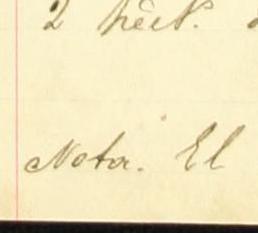 2 hect.
Nota. El